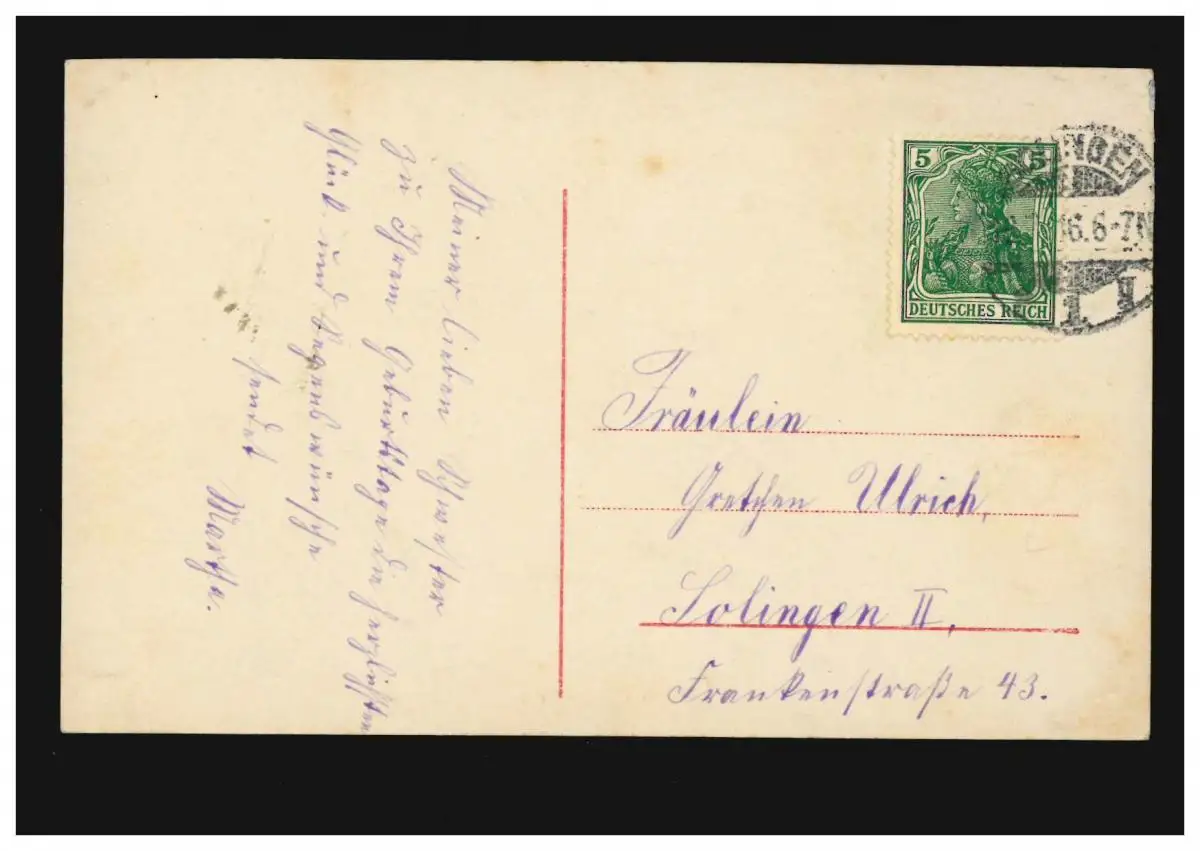 Meiner lieben Schwester
zu Ihrem Geburtstage die herzlichsten
Glück und Segenswünsche
sendet
Martha.
5 5
DEUTSCHES REICH
6.6-7N
Fräulein
Gretchen Ulrich,
Solingen II,
Frankenstraße 43.